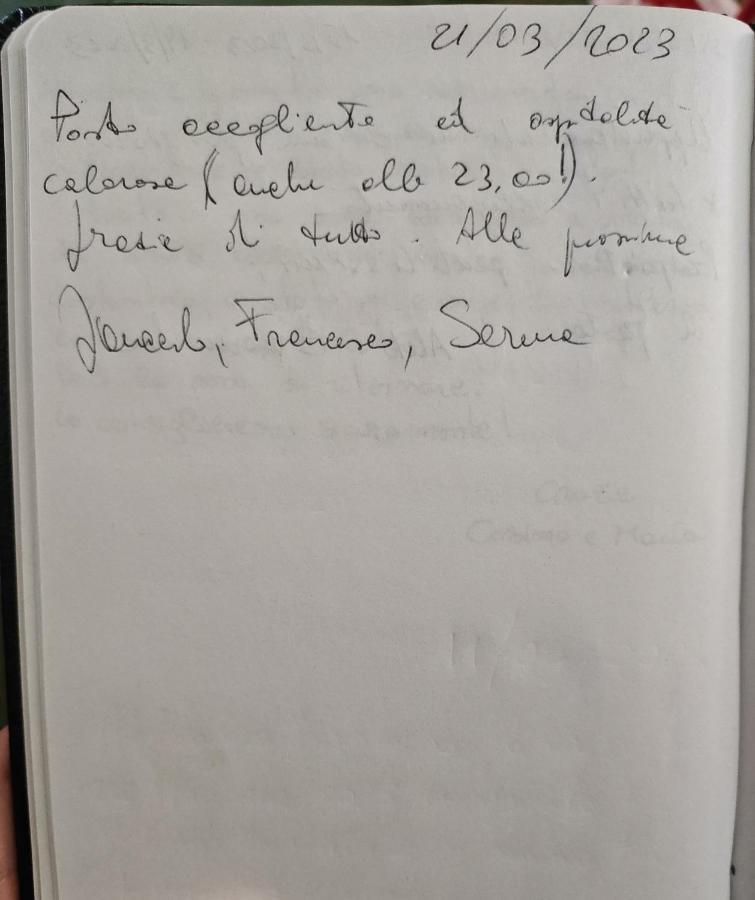 21/03/2023
Posto accogliente ed ospitalità
calorosa (anche alle 23,00!).
Grazie di tutto. Alla prossima
Francesco, Serena